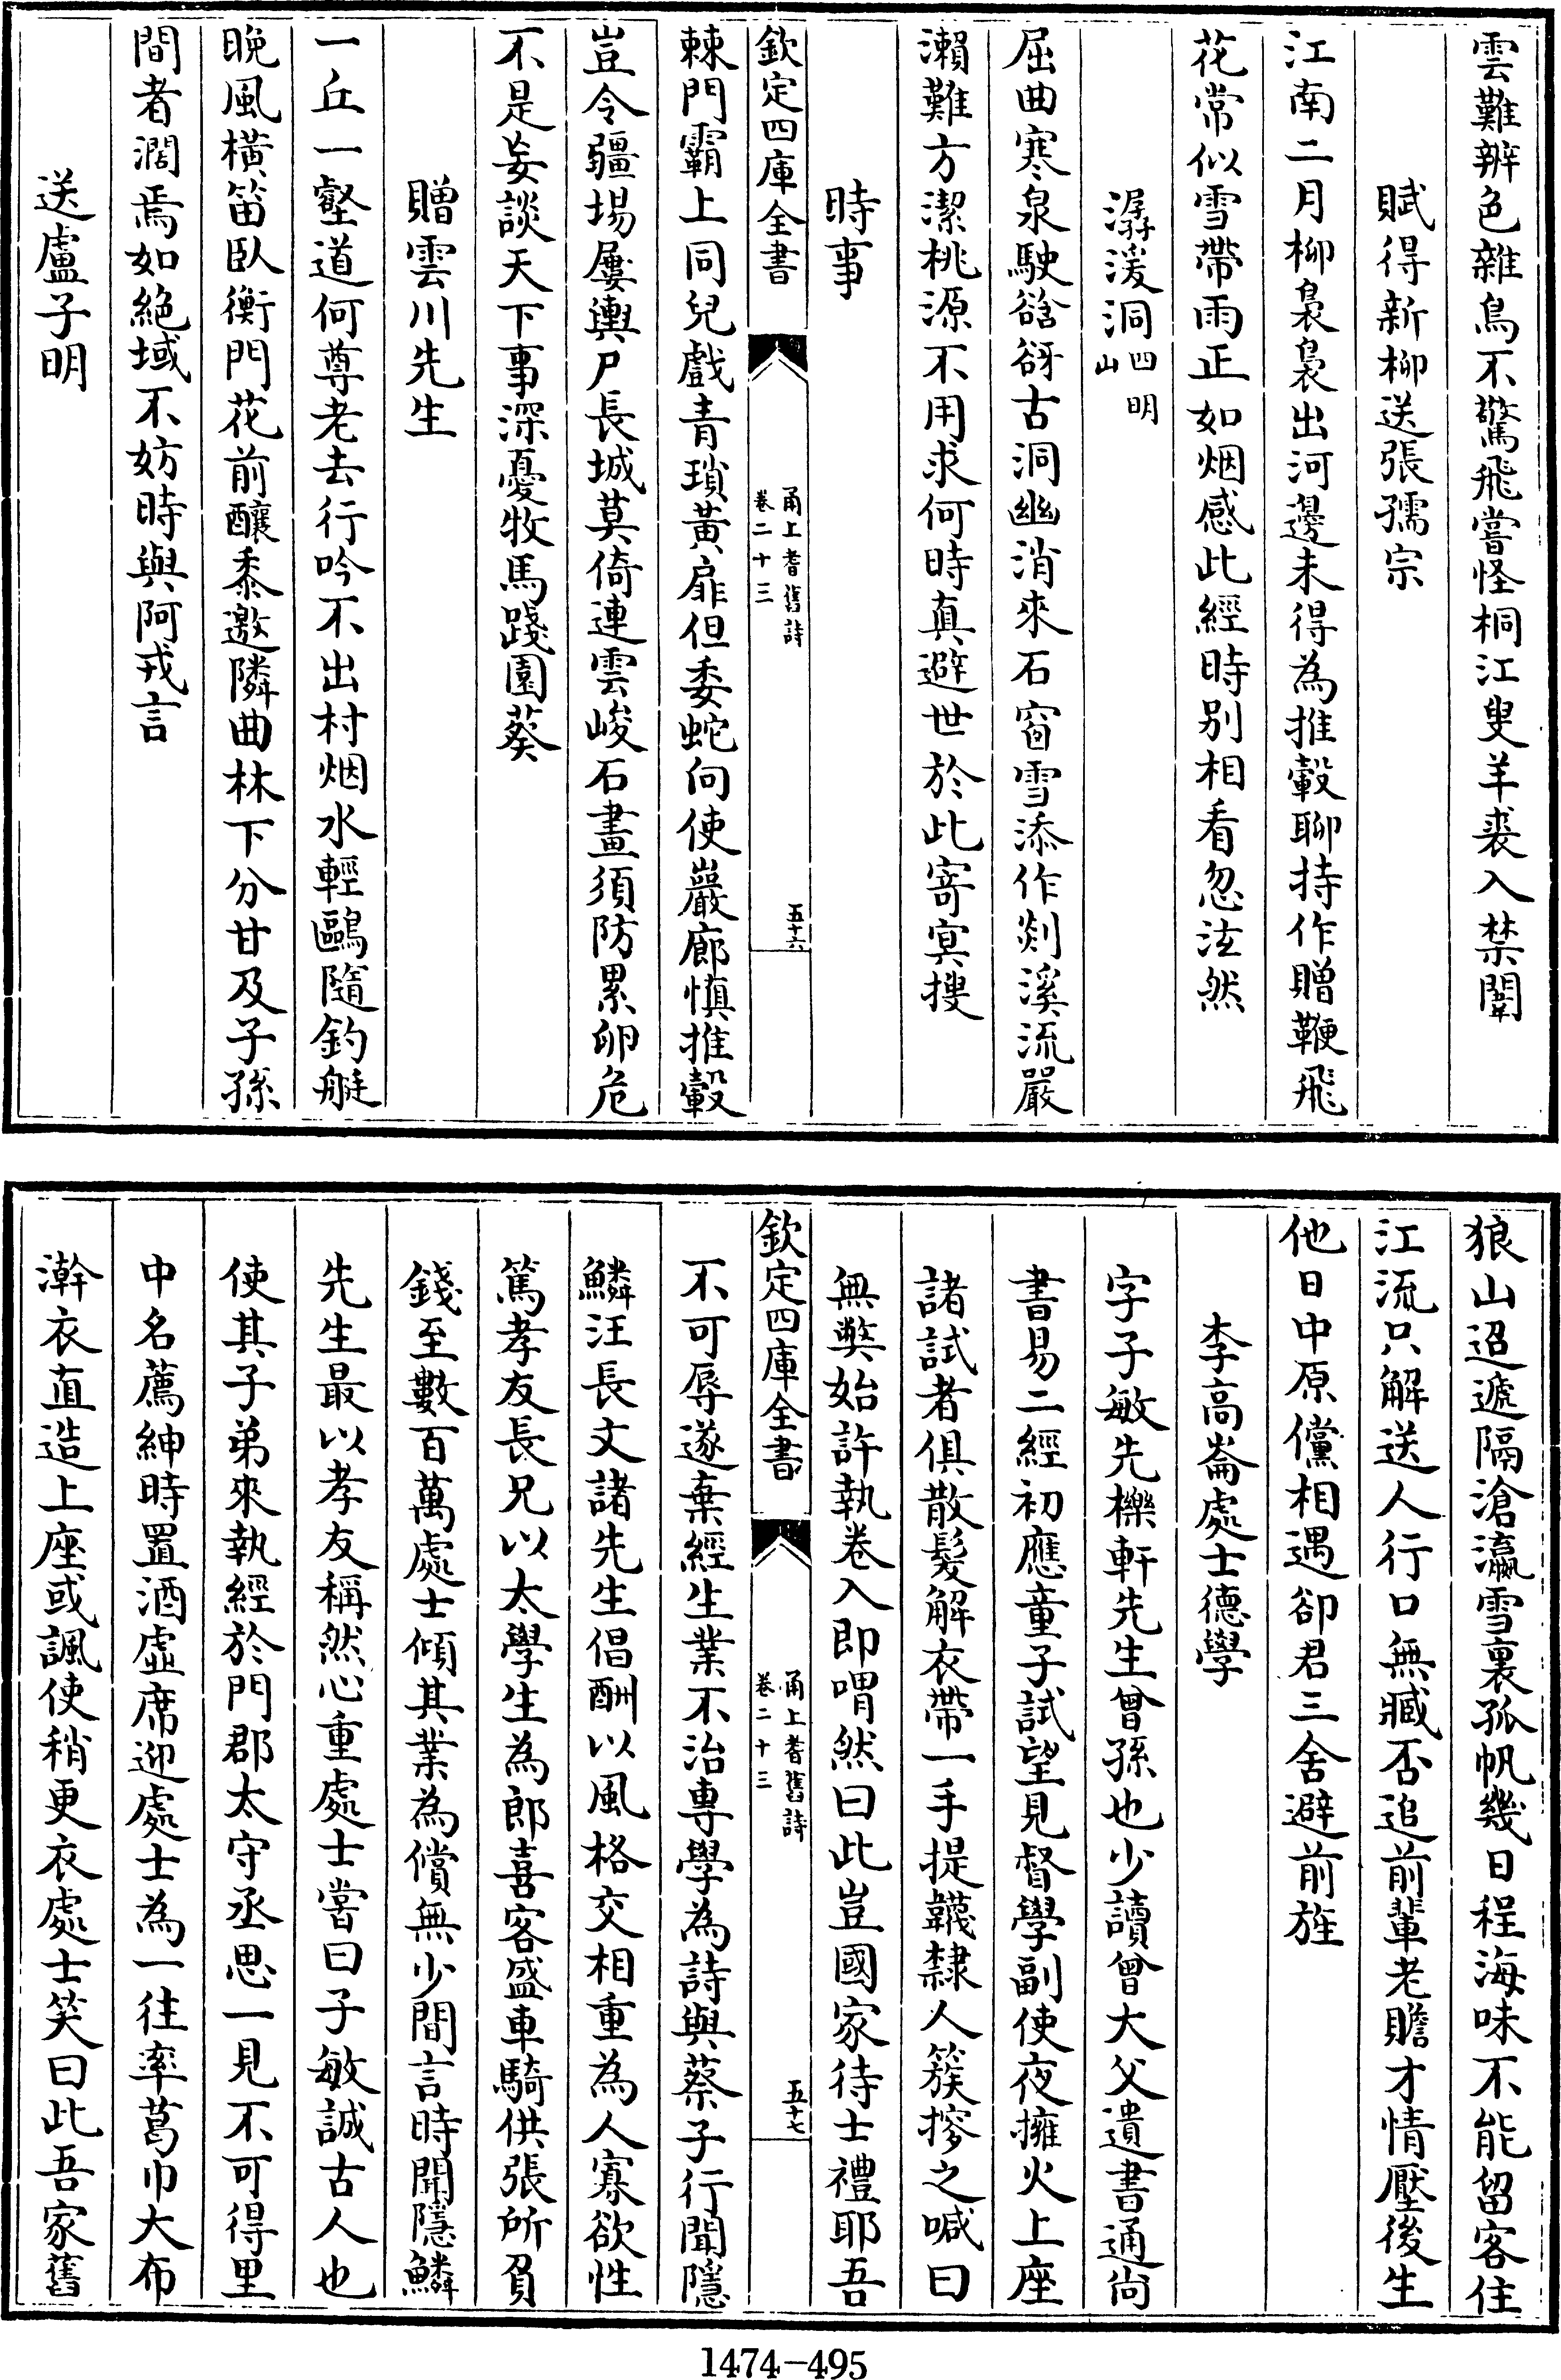 雲難辨色雜鳥不驚飛嘗怪桐江叟羊裘入禁闈
賦得新柳送張孺宗
江南二月柳裊裊出河邊未得為推轂聊持作贈鞭飛
花常似雪帶雨正如烟感此經時别相看忽泫然
潺湲洞四明山
屈曲寒泉駛谽谺古洞幽消來石窗雪添作剡溪流嚴
瀨難方潔桃源不用求何時真避世於此寄冥搜
時事
欽定四庫全書
甬上耆舊詩
卷二十三
五十六
棘門霸上同兒戲青瑣黃扉但委蛇向使巖廊慎推轂
豈令疆場屢輿尸長城莫倚連雲峻石畫須防累卵危
不是妄談天下事深憂牧馬踐園葵
贈雲川先生
一丘一壑道何尊老去行吟不出村烟水輕鷗隨釣艇
晚風橫笛臥衡門花前釀黍邀隣曲林下分甘及子孫
間者濶焉如絶域不妨時與阿戎言
送盧子明
狼山迢遞隔滄瀛雪裏孤帆幾日程海味不能留客住
江流只解送人行口無臧否追前輩老贍才情壓後生
他日中原儻相遇卻君三舍避前旌
李高崙處士德學
字子敏先櫟軒先生曾孫也少讀曾大父遺書通尚
書易二經初應童子試望見督學副使夜擁火上座
諸試者俱散髮解衣帶一手提韈隸人簇摉之喊曰
無獘始許執卷入即喟然曰此豈國家待士禮耶吾
欽定四庫全書
甬上耆舊詩
卷二十三
五十七
不可辱遂棄經生業不治專學為詩與蔡子行聞隱
鱗汪長文諸先生倡酬以風格交相重為人寡欲性
篤孝友長兄以太學生為郎喜客盛車騎供張所負
錢至數百萬處士傾其業為償無少間言時聞隱鱗
先生最以孝友稱然心重處士嘗曰子敏誠古人也
使其子弟來執經於門郡太守丞思一見不可得里
中名薦紳時置酒虛席迎處士為一往率葛巾大布
澣衣直造上座或諷使稍更衣處士笑曰此吾家舊
1474-495